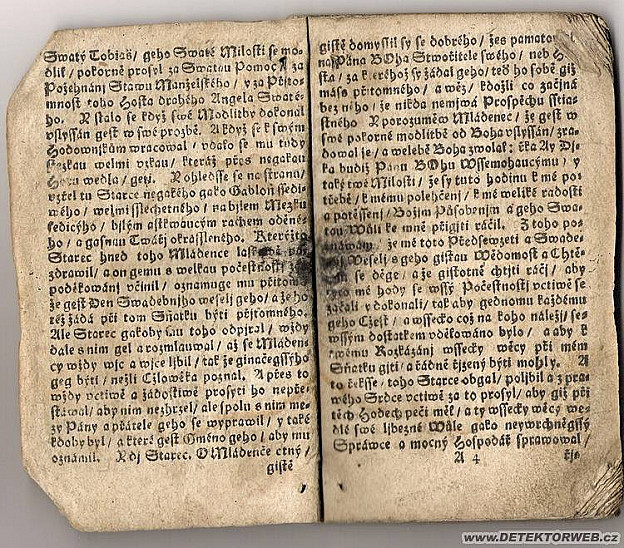 Swatý Tobiáš / geho Swaté Milosti se mo-
dlil / pokorně prosyl za Swatou Pomoc / za
Požehnánj Stawu Manželského / y za Přjto-
mnost toho Hosta drahého Angela Swaté-
ho. R stalo se když swé Modlitby dokonal
vslyssán gest w swé prozbě. A když se k swým
Hodownjkům wracowal / vdalo se mu tudy
stezkau welmi vzkau / kteráž přes negakau
Horu wedla / gjti. Rohledsse se na stranu /
vzřel tu Starce negakého gako Gabloň ssedi-
wého / welmi sslechetného / na bjlém Mezku
sedjcyho / bjlým a stkwaucým rauchem oděné-
ho / a gasnau Twářj okrássleného. Kterýžto
Starec hned toho Mládence laskawě po-
zdrawil / a on gemu s welkau počestnostj
poděkowánj včinil / oznamuge mu přitom
že gest Den Swadebnjho weselj geho / a že ho
též žádá při tom Sňatku býti přjtomného.
Ale Starec gakoby mu toho odpjral / wždy
dále s njm gel a rozmlauwal / až se Mláden-
cy wždy wjc a wjce ljbil / tak že ginačegssýho
geg býti / nežli Człowěka poznal. A přes to
wždy vctiwě a žádostiwě prosyti ho nepře-
stáwal / aby njm nezhrzel / ale spolu s njm me-
zy Pány a přátele geho se wyprawil / y také
kdoby byl / a které gest Gméno geho / aby mu
oznámil. R dj Starec. O Mládenče ctný /
gistě
gistě domyslil sy se dobrého / žes pamatow
na Pána BOha Stwořitele swého / neb H
sta / za kteréhož sy žádal geho / teď ho sobě giž
máss přjtomného / a wěz / kdožli co začjná
bez něho / že nikda nemjwá Prospěchu sstia-
stného R porozuměw Mládenec / že gest w
swé pokorné modlitbě od Boha vslyssán / zra-
dowal se / a welebě Boha zwolal: řka Ay Dj-
ka budiž Pánu BOhu Wssemohaucýmu / y
také twé Milosti / že sy tuto hodinu k mé po-
třebě / k mému polehčenj / k mé weliké radosti
a potěssenj / Božjm Působenjm a geho Swa-
tou Wůli ke mně přigjti ráčil. Z toho po-
znáwám / že mé toto Předsewzetj a Swade-
nj Weselj s geho gistau Wědomostj a Chtě-
se děge / a že gistotně chtjti ráčj / aby
mé hody se wssý Počestnostj vctiwě se
začali y dokonali / tak aby gednomu každému
geho Cžest / a wssecko což na koho náležj / se-
wssým dostatkem vděkowáno bylo / a aby k
swému Rozkázánj wssecky wěcy při mém
Sňatku gjti / a řádně řjzený býti mohly. A
to řeksse / toho Starce obgal / poljbil a z pra-
wého Srdce vctiwě za to prosyl / aby giž při
těch Hodech péči měl / a ty wssecky wěcy we-
dlé swé ljbezné Wůle gako neywrchněgssý
Spráwce a mocný Hospodář sprawowal /
A 4
řjz
www.DETEKTORWEB.cz